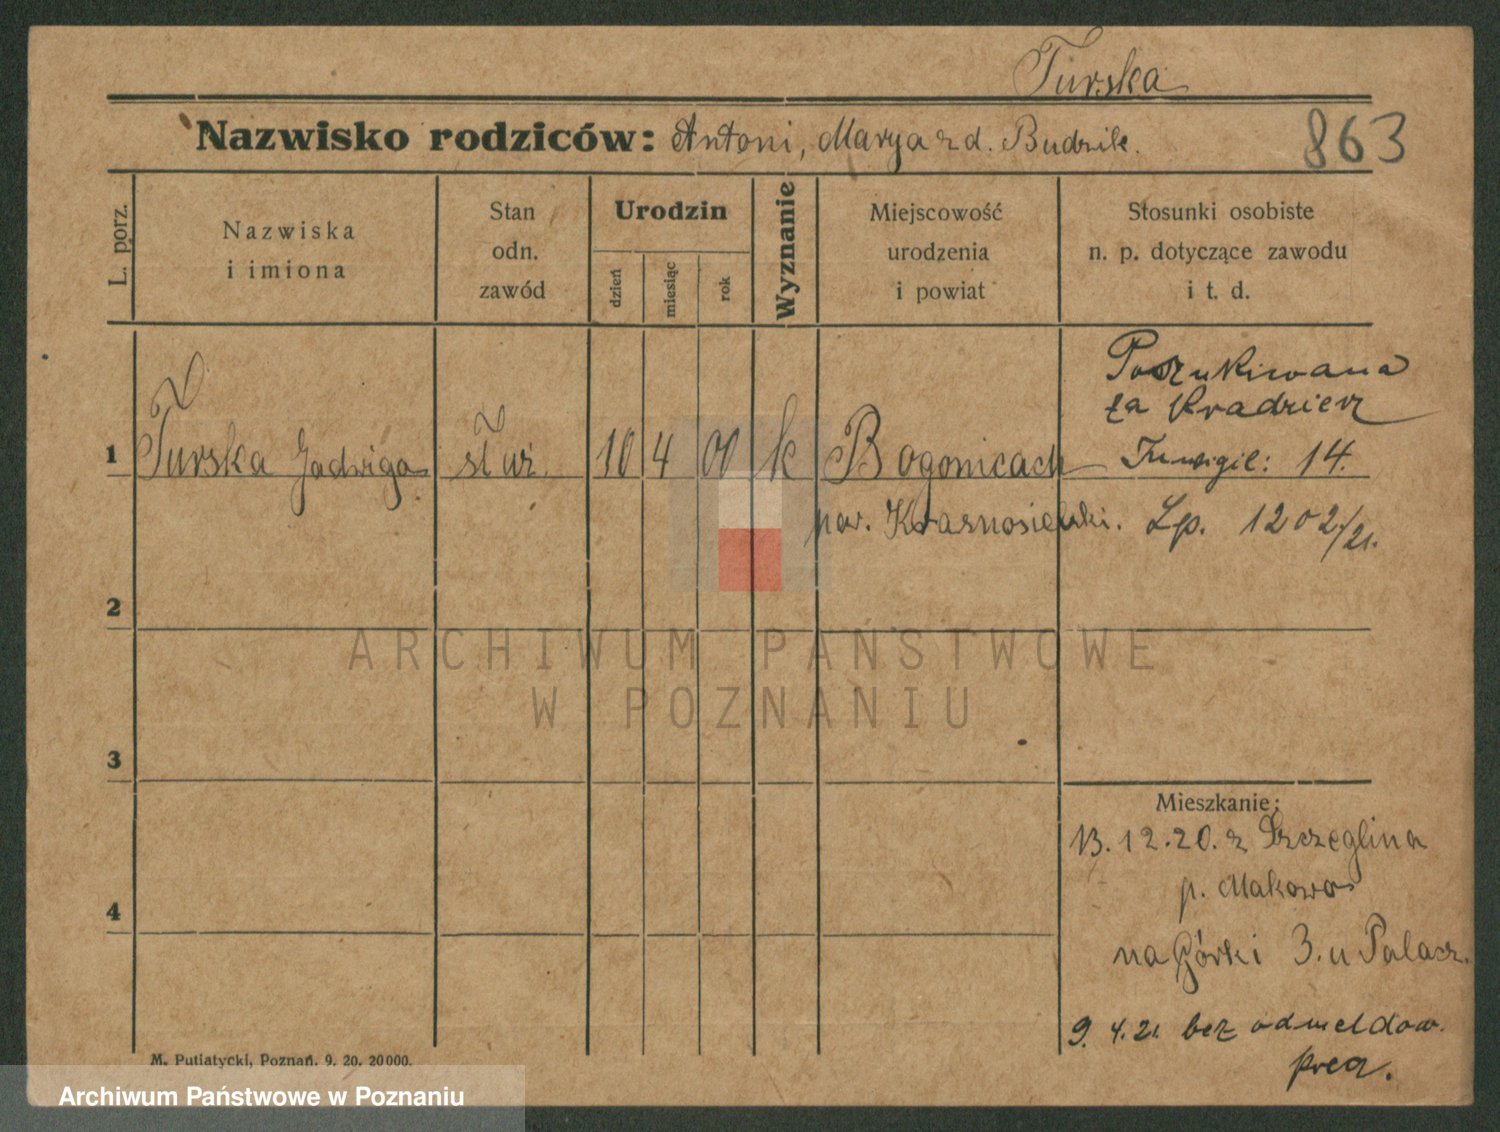 Turska
Nazwisko rodziców: Antoni, Marya zd. Budzik.
863
L. porz.
Nazwiska
i imiona
Stan
odn.
zawód
Urodzin
dzień
miesiąc
rok
Wyznanie
Miejscowość
urodzenia
i powiat
Stosunki osobiste
n. p. dotyczące zawodu
i t. d.
Poszukiwana
za Kradzierz
1 Turska Jadwiga służ. 10 4 00 k Bogonicach Inwigil: 14.
pow. Krasnosielski. Lp. 1202/21.
2
3
4
Mieszkanie:
13.12.20. z Szczeglina
p. Makowo
na Górki 3. u Palacz.
9. 4. 21. bez odmeldow.
M. Putiatycki, Poznań. 9. 20. 20000.
ARCHIWUM PAŃSTWOWE
W POZNANIU
Archiwum Państwowe w Poznaniu